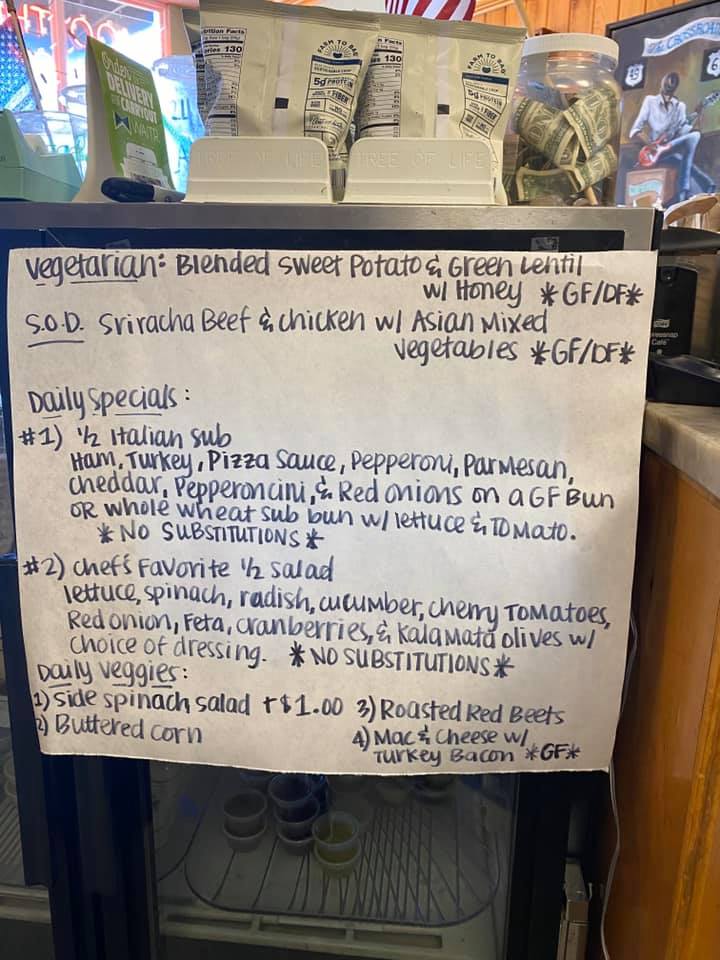 Order
DELIVERY
or CARRYOUT
WAITR
Nutrition Facts
Calories 130
FARM TO BAG
5g PROTEIN
FIBER
Nutrition Facts
Calories 130
FARM TO BAG
5g PROTEIN
TREE OF LIFE
TREE OF LIFE
The CROSSROADS
49
6
Vegetarian: Blended Sweet Potato & Green Lentil
w/ Honey *GF/DF*
S.O.D. Sriracha Beef & Chicken w/ Asian Mixed
Vegetables *GF/DF*
Daily Specials:
#1) 1/2 Italian Sub
Ham, Turkey, Pizza Sauce, Pepperoni, Parmesan,
Cheddar, Pepperoncini, & Red Onions on a GF Bun
OR whole wheat sub bun w/ lettuce & Tomato.
*NO SUBSTITUTIONS*
#2) Chef's Favorite 1/2 Salad
lettuce, spinach, radish, cucumber, cherry Tomatoes,
Red onion, Feta, cranberries, & Kalamata olives w/
Choice of dressing. *NO SUBSTITUTIONS*
Daily Veggies:
1) Side spinach salad +$1.00
2) Buttered corn
3) Roasted Red Beets
4) Mac & Cheese w/
Turkey Bacon *GF*